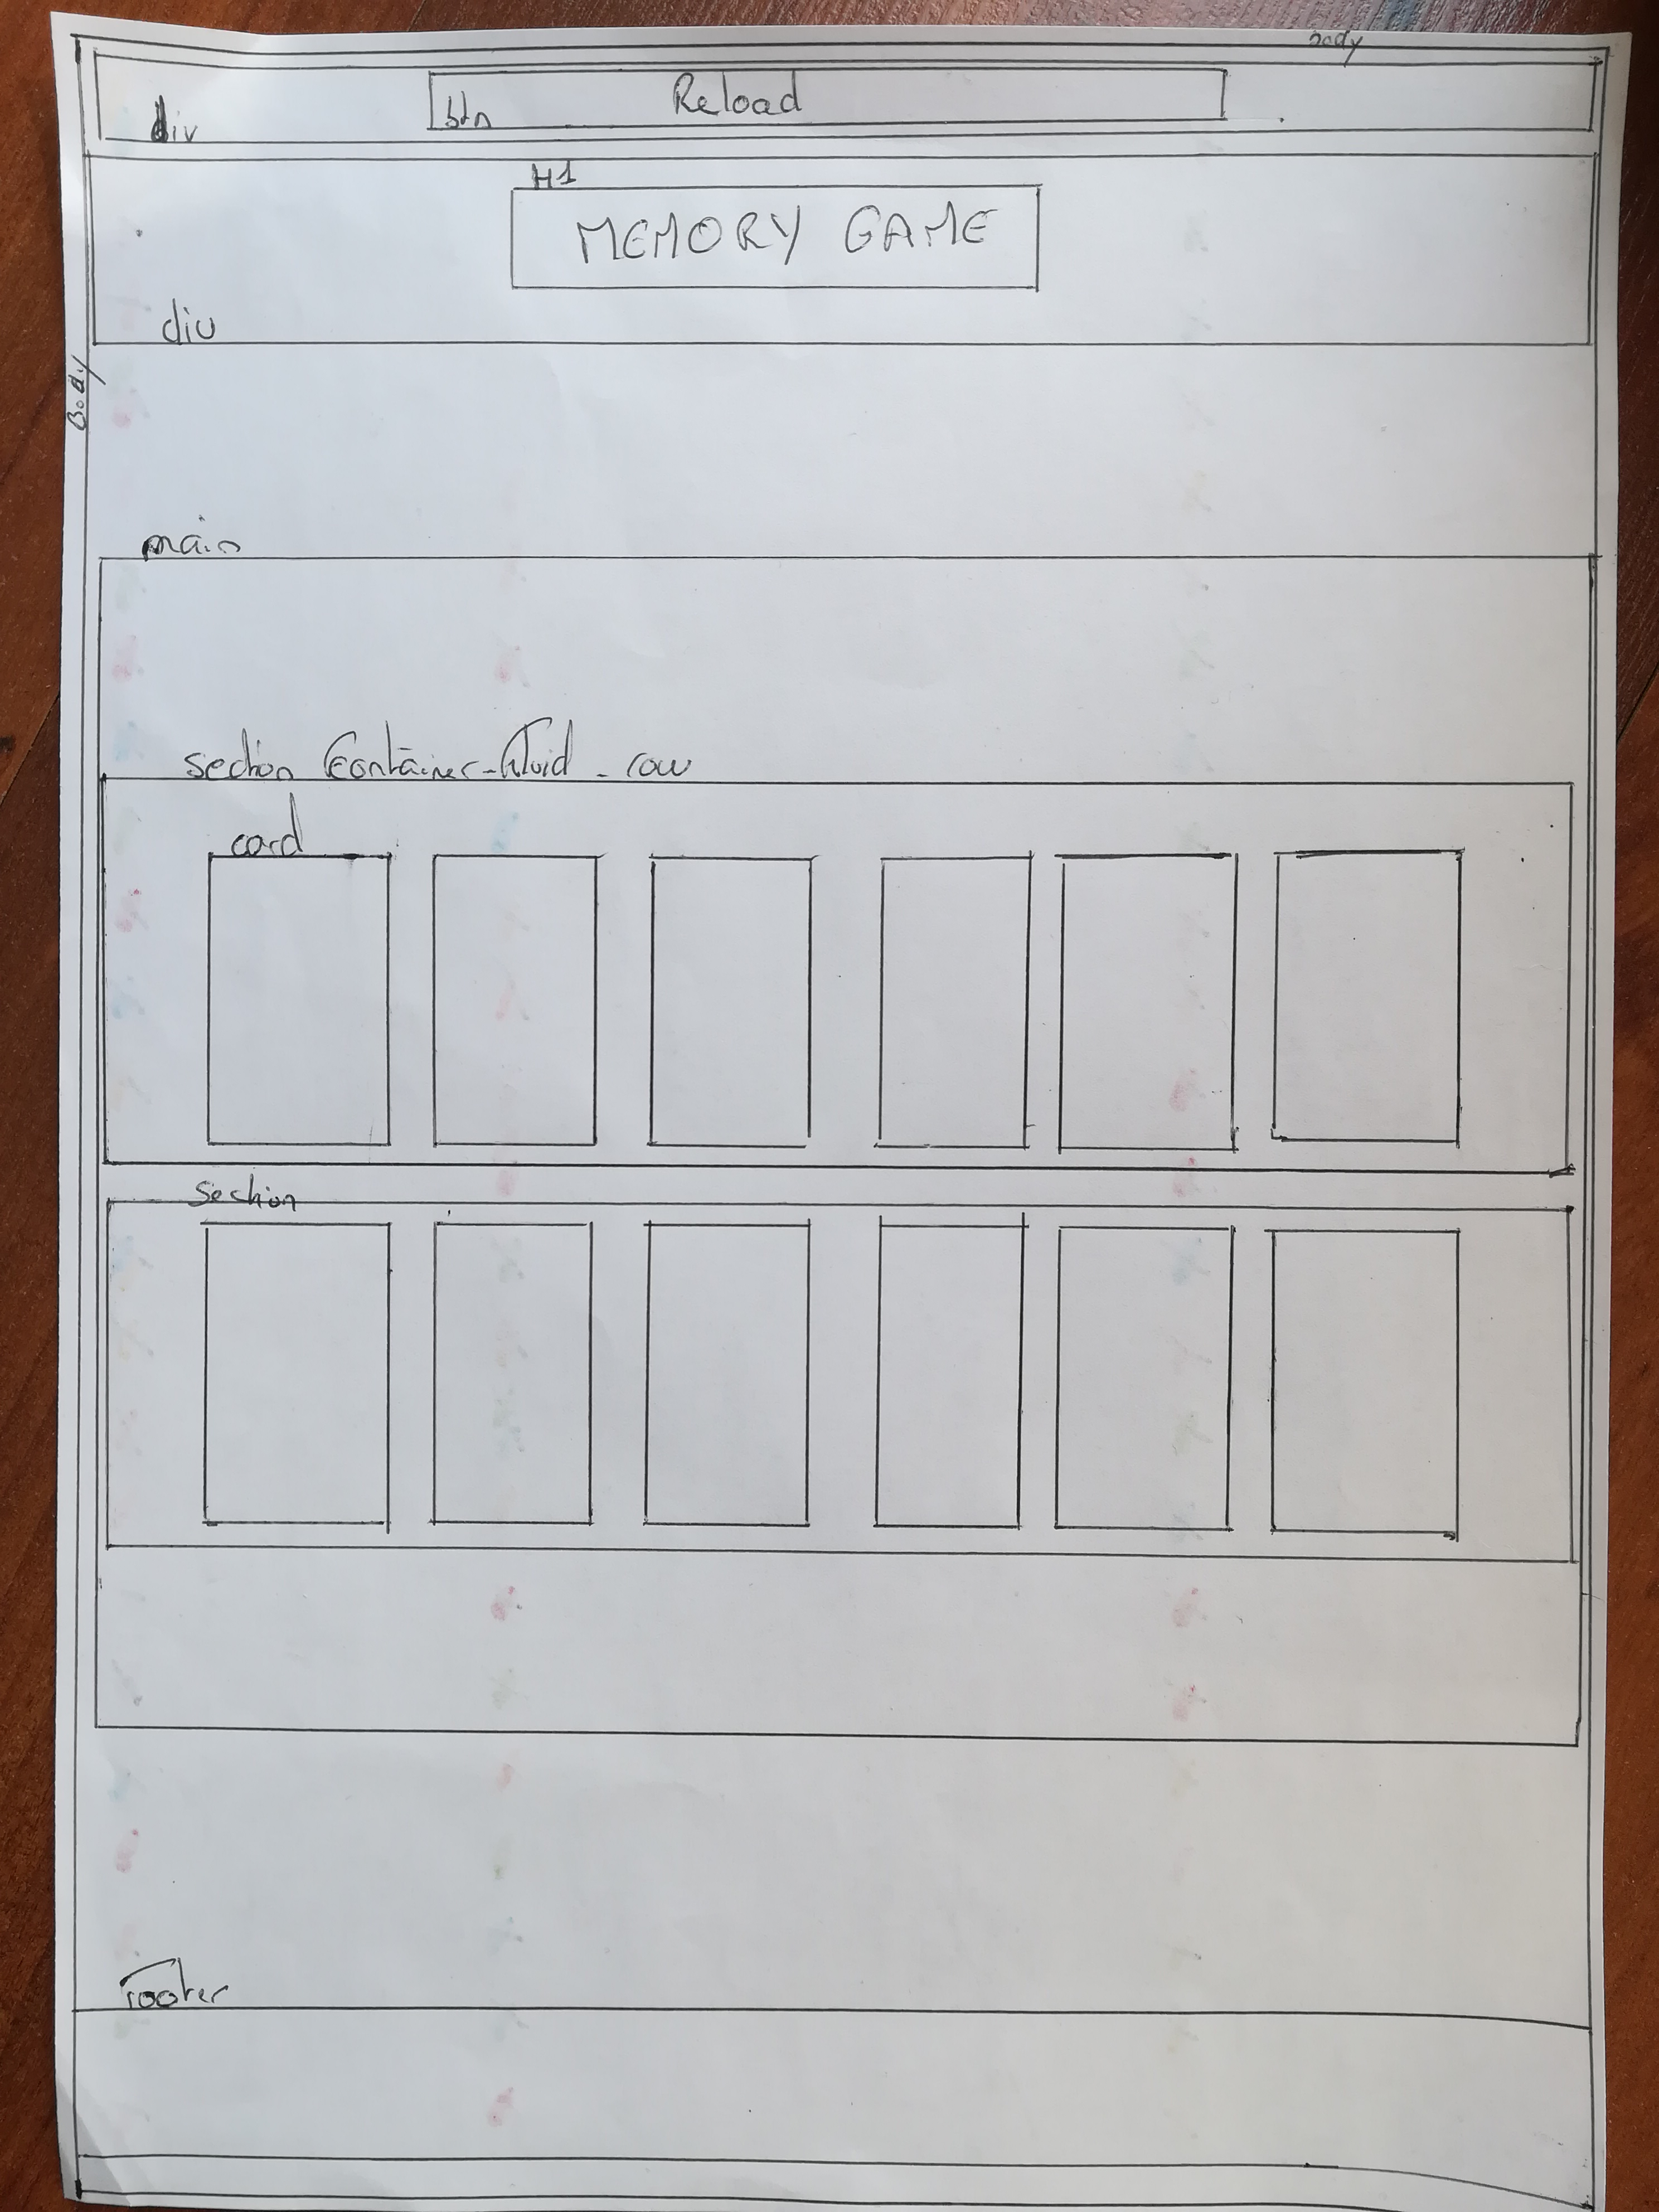 body
btn Reload
div
H1
MEMORY GAME
div
Body
main
section Container-fluid - row
card
section
Footer